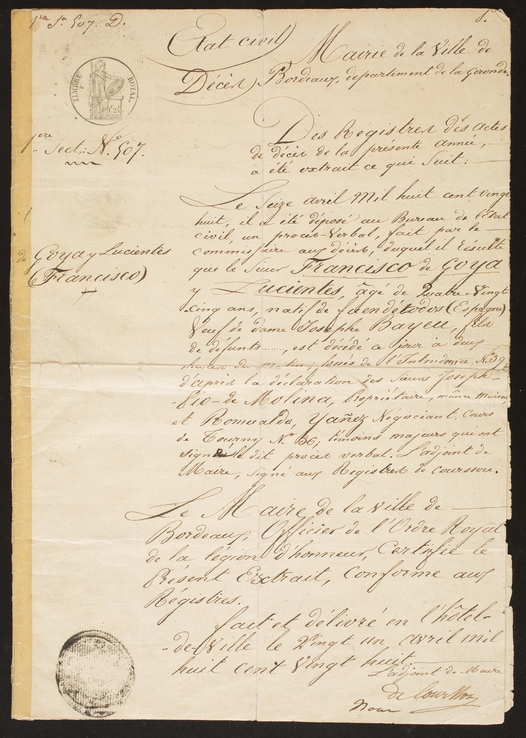 1re Sn 507. D.
1.
Etat civil
Mairie de la Ville de
Décès Bordeaux, département de la Gironde.
TIMBRE ROYAL
Des Registres des actes
de décès de la présente année,
a été extrait ce qui suit:
1ere Sect: No 507.
Le Seize avril Mil huit cent vingt
huit, il a été déposé au Bureau de l'Etat
civil, un procès-Verbal, fait par le
commissaire aux décès, duquel il Résulte
de Goya y Lucientes
que le Sieur Francisco de Goya
(Francisco)
y Lucientes, âgé de Quatre-Vingt
Cinq ans, natif de faendetodos (Espagne)
Veuf de dame Josephe Bayeu, fils
de défunts ......., est décédé a jour à deux
heures du matin, de l'Intendance, No 39
d'après la déclaration des Sieurs Joseph-
-Pio-de Molina, Propriétaire, même Maison
et Romualdo Yañez Négociant. Cours
de Tourny No 36, témoins majeurs qui ont
signé le dit procès verbal. L'adjoint de
Maire, signé aux Registres de Courssou.
Le Maire de la Ville de
Bordeaux, Officier de l'Ordre Royal
de la légion d'honneur, Certifie le
Présent Extrait, conforme aux
Régistres.
fait et délivré en l'hôtel-
-de-Ville le Vingt un avril mil
huit cent Vingt huit
L'adjoint de Maire